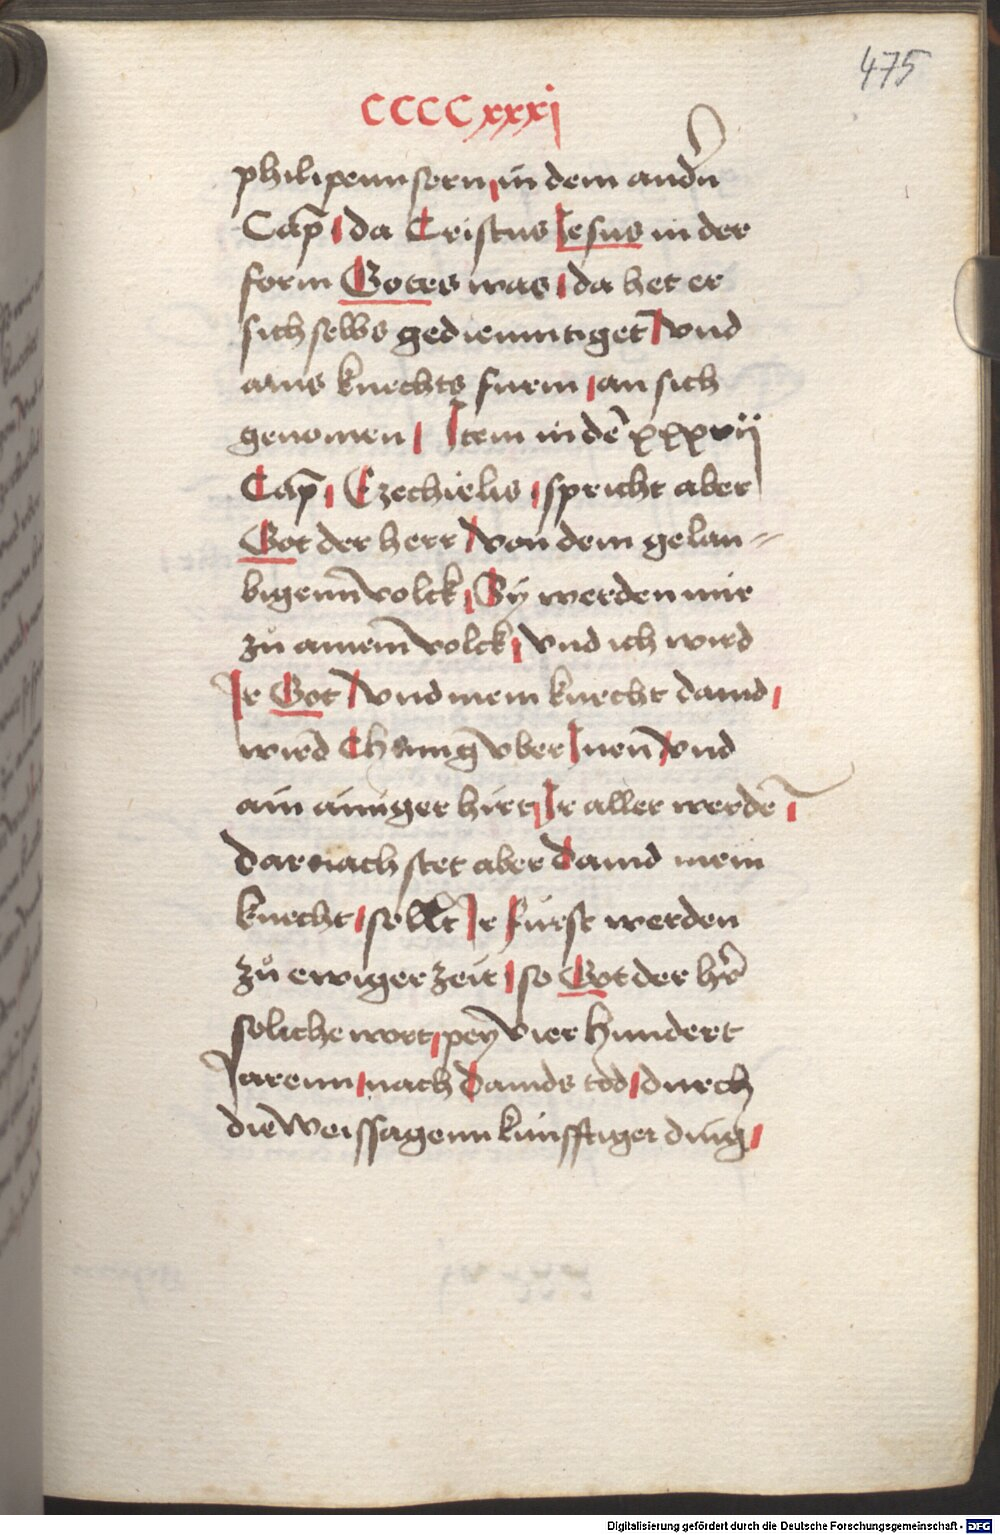 475
CCCCxxxj
philipennsern / in dem andn̄
Cap̄ / da Cristus Jesus in der
form Gotes was / da het er
sich selbs gediemutiget / vnd
ains knechts furm / an sich
genomen / Item in dē xxxvij
Cap̄ / Ezechielis / spricht aber
Got der herr / von dem gelau=
bigenn volck / Sy werden mir
zů ainem volck / vnd ich wird
Ir Got / vnd mein knecht dauid /
wird Chunig vber Inen / vnd
ain ainiger hirt / Ir aller werdē /
Darnach stet aber Dauid mein
knecht / sollt Ir fürst werden
zů ewiger zeit / so Got der hr̄
soliche wort / pey vier hundert
Jarenn / nach Dauids tod / durch
die weissagenn künfftiger ding /
Digitalisierung gefördert durch die Deutsche Forschungsgemeinschaft - DFG